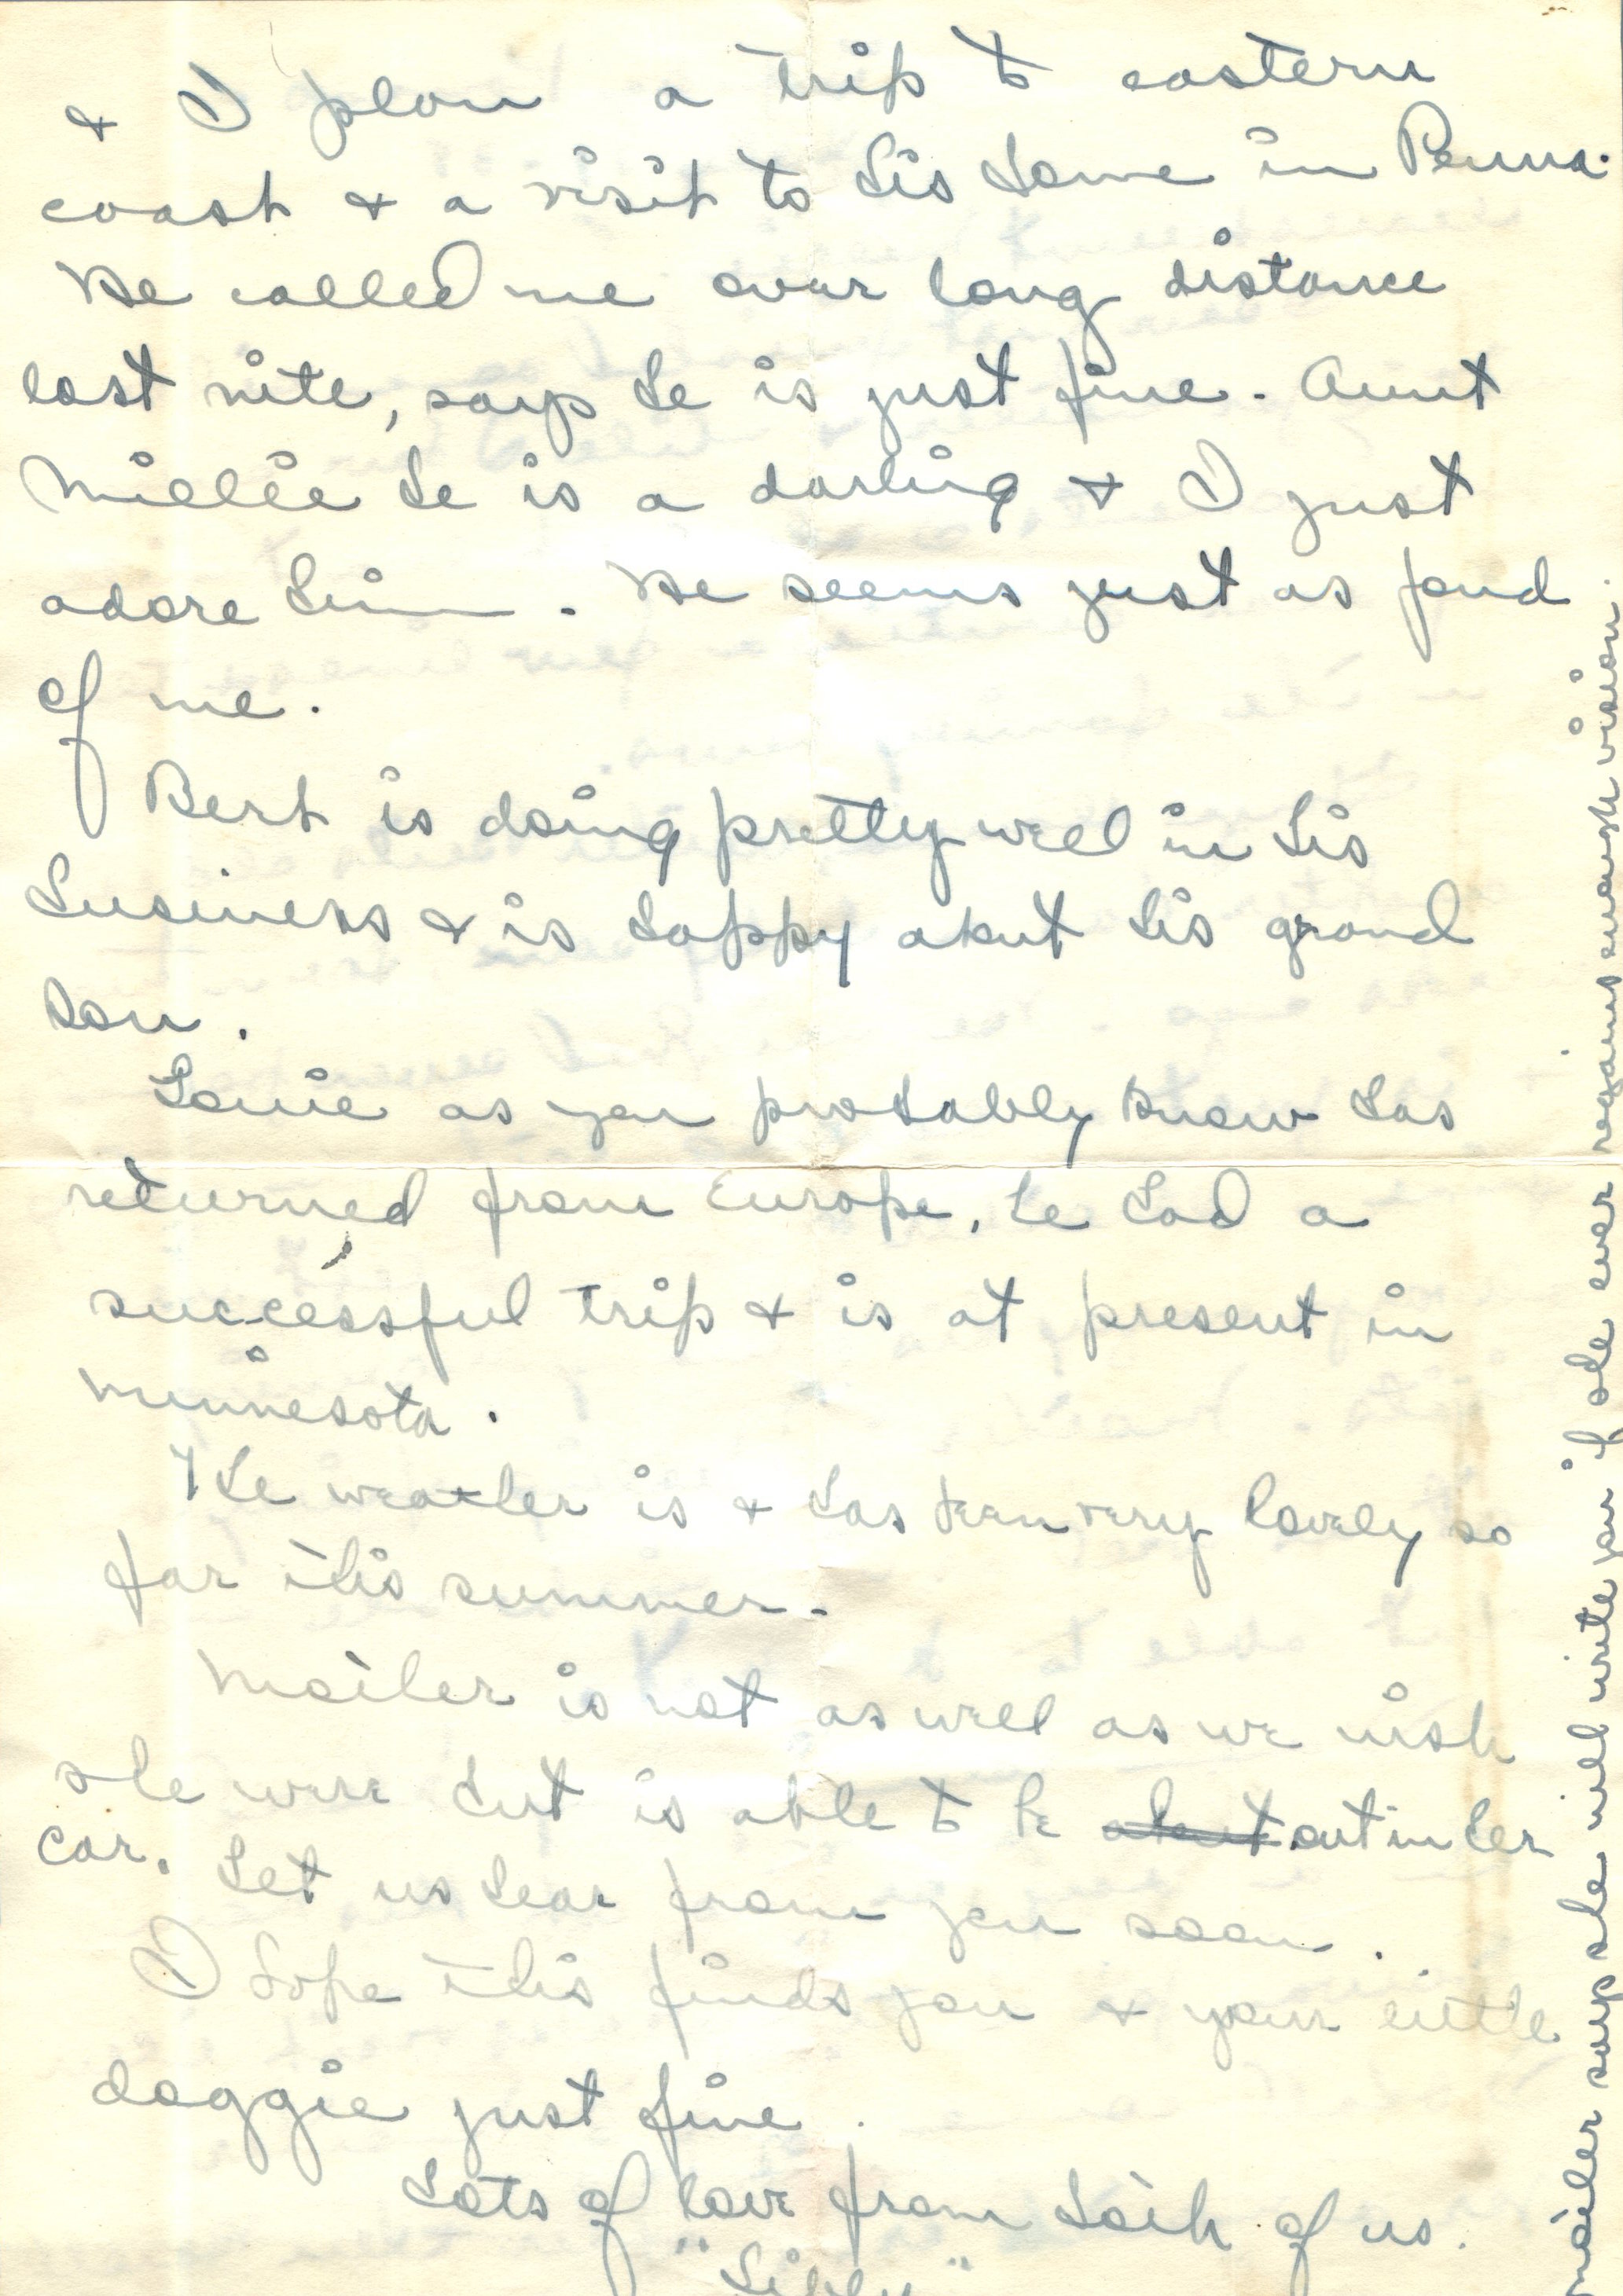 & I plan a trip to eastern
coast & a visit to his home in Penna.
He called me over long distance
last nite, says he is just fine. Aunt
Millie he is a darling & I just
adore him. He seems just as fond
of me.
Bert is doing pretty well in his
business & is happy about his grand
son.
Louie as you probably know has
returned from Europe, he had a
successful trip & is at present in
Minnesota.
The weather is & has been very lovely so
far this summer.
Mother is not as well as we wish
she were but is able to be about out in her
car. Let us hear from you soon.
I hope this finds you & your little
doggie just fine.
Lots of love from both of us.
"Libby"
Mother says she will write you if she ever regains enough vision.